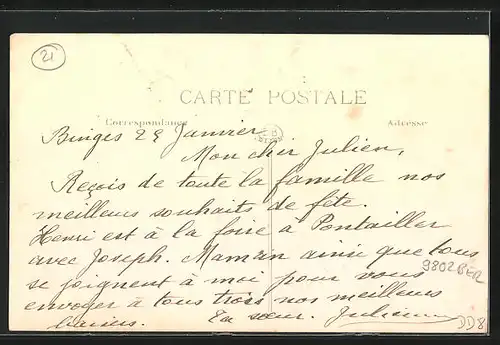 21
CARTE POSTALE
Correspondance
Adresse
Binges 29 Janvier
Mon cher Julien,
Reçois de toute la famille nos
meilleurs souhaits de fête.
Henri est à la foire à Pontailler
avec Joseph. Maman ainsi que tous
se joignent à moi pour vous
envoyer à tous trois nos meilleurs
baisers. Ta sœur.
9802BER
DD8